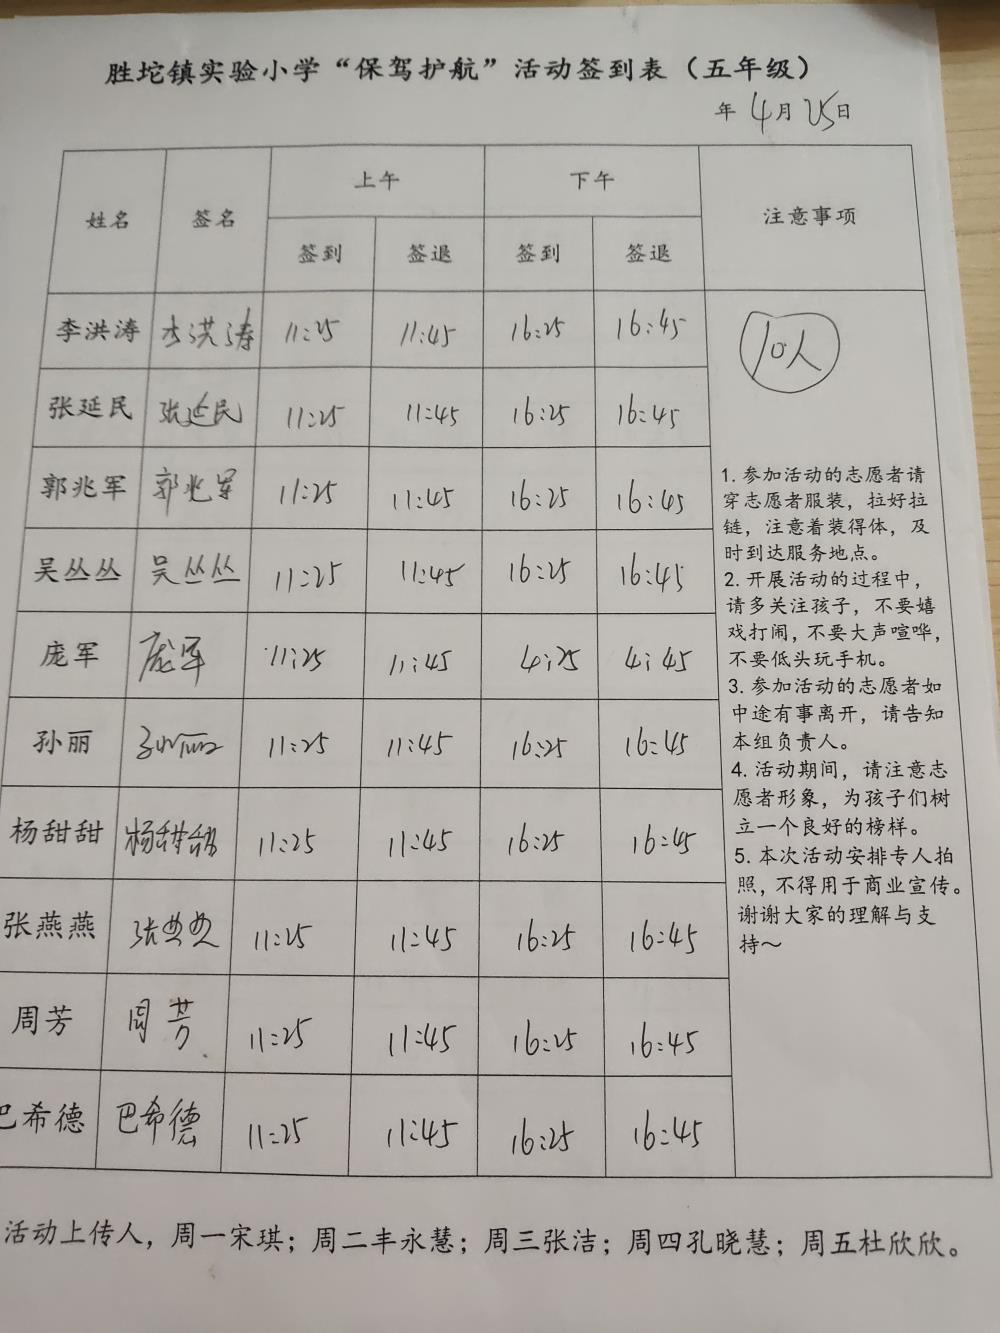 胜坨镇实验小学“保驾护航”活动签到表（五年级）
年 4月 25日
姓名 签名 上午 下午 注意事项
签到 签退 签到 签退
李洪涛 李洪涛 11:25 11:45 16:25 16:45
10人
张延民 张延民 11:25 11:45 16:25 16:45
郭兆军 郭兆军 11:25 11:45 16:25 16:45
吴丛丛 吴丛丛 11:25 11:45 16:25 16:45
庞军 庞军 11:25 11:45 4:25 4:45
孙丽 孙丽 11:25 11:45 16:25 16:45
杨甜甜 杨甜甜 11:25 11:45 16:25 16:45
张燕燕 张燕燕 11:25 11:45 16:25 16:45
周芳 周芳 11:25 11:45 16:25 16:45
巴希德 巴希德 11:25 11:45 16:25 16:45
1. 参加活动的志愿者请
穿志愿者服装，拉好拉
链，注意着装得体，及
时到达服务地点。
2. 开展活动的过程中，
请多关注孩子，不要嬉
戏打闹，不要大声喧哗，
不要低头玩手机。
3. 参加活动的志愿者如
中途有事离开，请告知
本组负责人。
4. 活动期间，请注意志
愿者形象，为孩子们树
立一个良好的榜样。
5. 本次活动安排专人拍
照，不得用于商业宣传。
谢谢大家的理解与支
持～
活动上传人，周一宋琪；周二丰永慧；周三张洁；周四孔晓慧；周五杜欣欣。